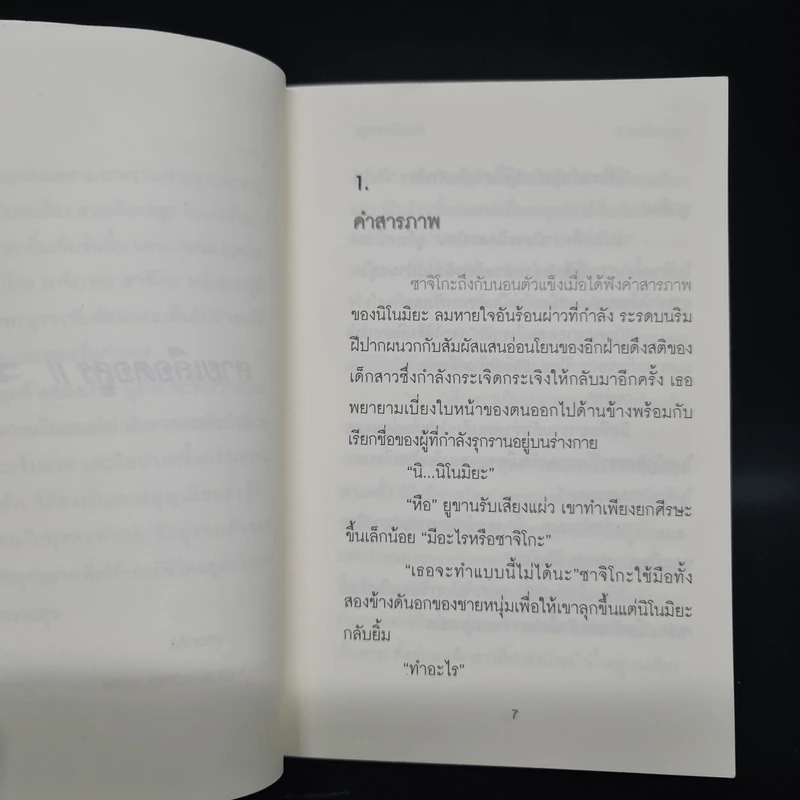 1.
คำสารภาพ
ซาจิโกะถึงกับนอนตัวแข็งเมื่อได้ฟังคำสารภาพ
ของนิโนมิยะ ลมหายใจอันร้อนผ่าวที่กำลัง ระรดบนริม
ฝีปากผนวกกับสัมผัสแสนอ่อนโยนของอีกฝ่ายดึงสติของ
เด็กสาวซึ่งกำลังกระเจิดกระเจิงให้กลับมาอีกครั้ง เธอ
พยายามเบี่ยงใบหน้าของตนออกไปด้านข้างพร้อมกับ
เรียกชื่อของผู้ที่กำลังรุกรานอยู่บนร่างกาย
“นิ...นิโนมิยะ”
“หือ” ยูขานรับเสียงแผ่ว เขาทำเพียงยกศีรษะ
ขึ้นเล็กน้อย “มีอะไรหรือซาจิโกะ”
“เธอจะทำแบบนี้ไม่ได้นะ”ซาจิโกะใช้มือทั้ง
สองข้างดันอกของชายหนุ่มเพื่อให้เขาลุกขึ้นแต่นิโนมิยะ
กลับยิ้ม
“ทำอะไร”
7